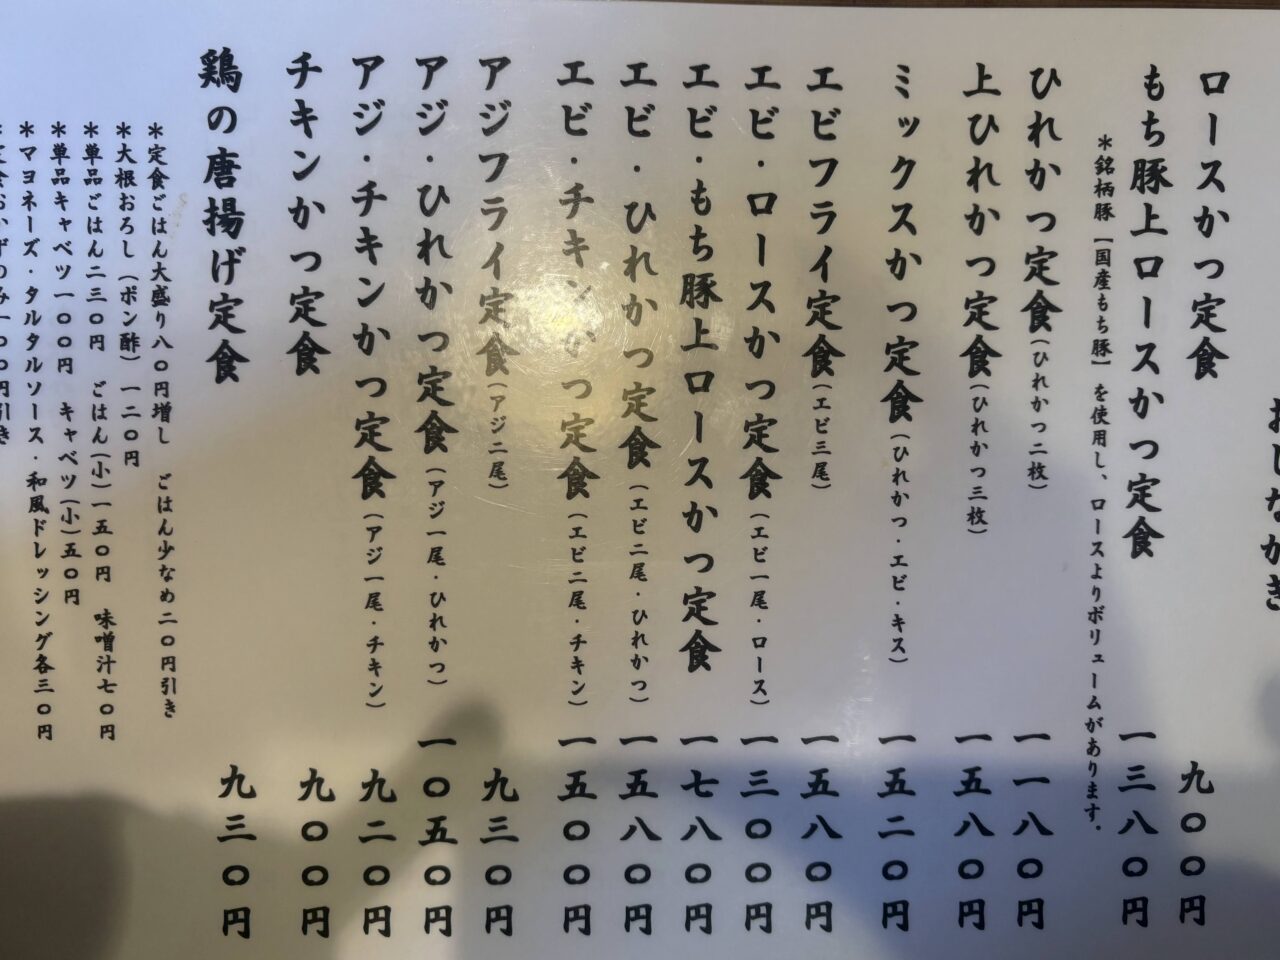 おしながき
ロースかつ定食 九〇〇円
もち豚上ロースかつ定食 一三八〇円
＊銘柄豚【国産もち豚】を使用し、ロースよりボリュームがあります。
ひれかつ定食（ひれかつ二枚） 一一八〇円
上ひれかつ定食（ひれかつ三枚） 一五八〇円
ミックスかつ定食（ひれかつ・エビ・キス） 一五二〇円
エビフライ定食（エビ三尾） 一五八〇円
エビ・ロースかつ定食（エビ一尾・ロース） 一三〇〇円
エビ・もち豚上ロースかつ定食 一七八〇円
エビ・ひれかつ定食（エビ二尾・ひれかつ） 一五八〇円
エビ・チキンかつ定食（エビ二尾・チキン） 一五〇〇円
アジフライ定食（アジ二尾） 九三〇円
アジ・ひれかつ定食（アジ一尾・ひれかつ） 一〇五〇円
アジ・チキンかつ定食（アジ一尾・チキン） 九二〇円
チキンかつ定食 九〇〇円
鶏の唐揚げ定食 九三〇円
＊定食ごはん大盛り八〇円増し ごはん少なめ二〇円引き
＊大根おろし（ポン酢）一二〇円
＊単品ごはん二三〇円 ごはん（小）一五〇円 味噌汁七〇円
＊単品キャベツ一〇〇円 キャベツ（小）五〇円
＊マヨネーズ・タルタルソース・和風ドレッシング各三〇円
＊定食おかずのみ一〇〇円引き